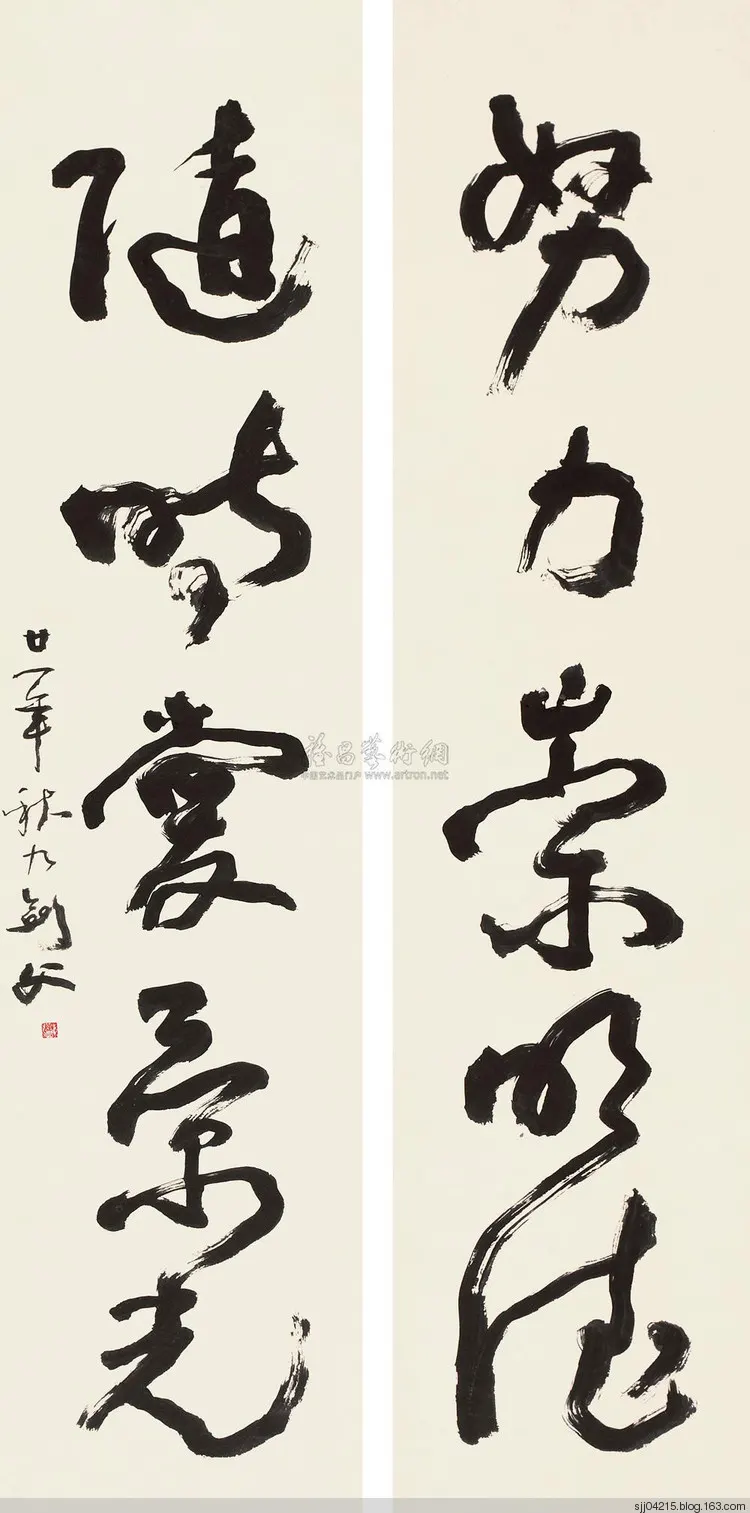 努力崇明德
隨時愛景光
廿一年秋九劍父
雅昌藝術網
中国艺术品门户 www.artron.net
sjj04215.blog.163.com